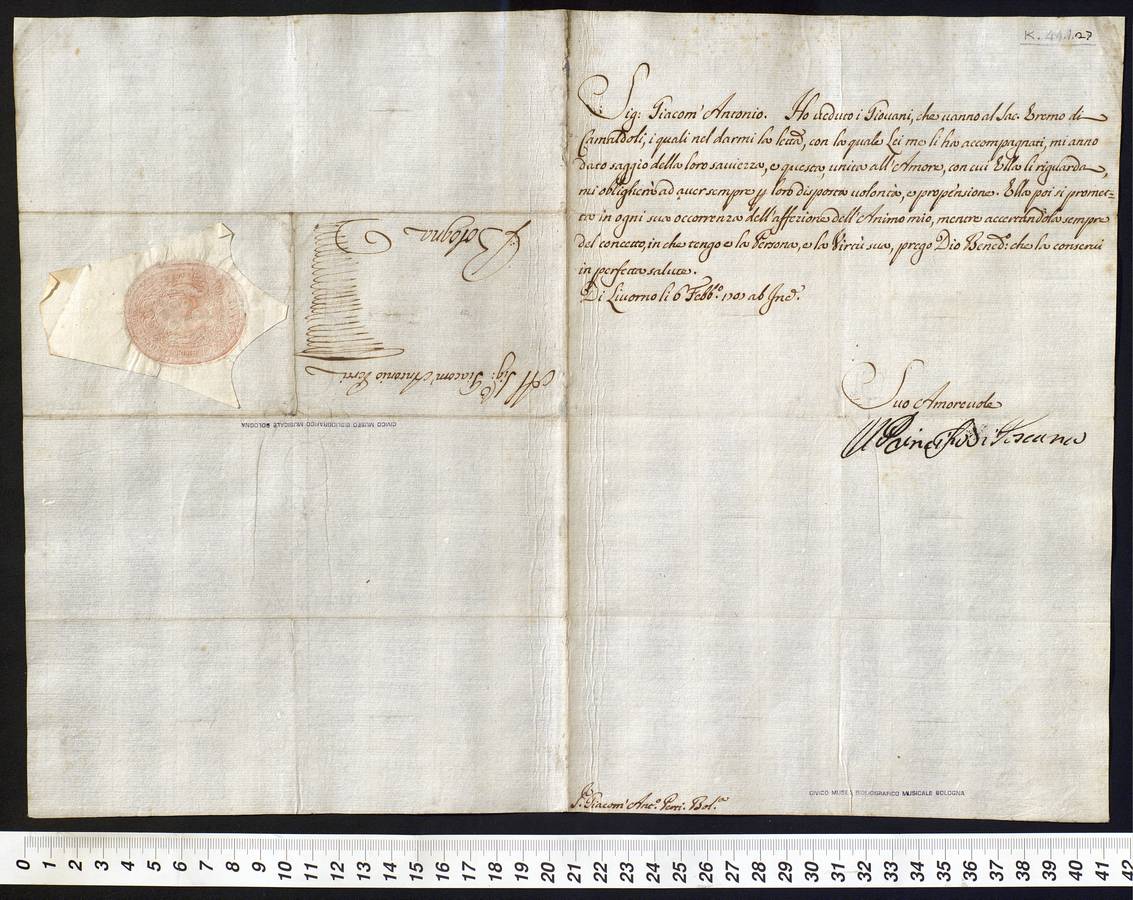 K. 44.1.27
Sig: Giacom' Antonio. Ho veduto i Giovani, che vanno al Sac. Eremo di
Camaldoli, i quali nel darmi la lettã, con la quale Lei me li ha accompagnati, mi anno
dato saggio della loro saviezza, e questa, unita all'Amore, con cui Ella li riguarda,
mi obligherà ad aver sempre p loro disposta volontà, e propensione. Ella poi si promet=
ta in ogni sua occorrenza dell'affezione dell'Animo mio, mentre accertandola sempre
del concetto, in che tengo e la Persona, e la Virtù sua, prego Dio Bened: che la conservi
in perfetta salute.
Di Livorno li 6 Febb.º 1701 ab Inc.
Suo Amorevole
Il Principe di Toscana
S. Giacom' Ant.º Perti. Bol.ª
CIVICO MUSEO BIBLIOGRAFICO MUSICALE BOLOGNA
Al Sig: Giacom' Antonio Perti
Bologna
CIVICO MUSEO BIBLIOGRAFICO MUSICALE BOLOGNA
0 1 2 3 4 5 6 7 8 9 10 11 12 13 14 15 16 17 18 19 20 21 22 23 24 25 26 27 28 29 30 31 32 33 34 35 36 37 38 39 40 41 42